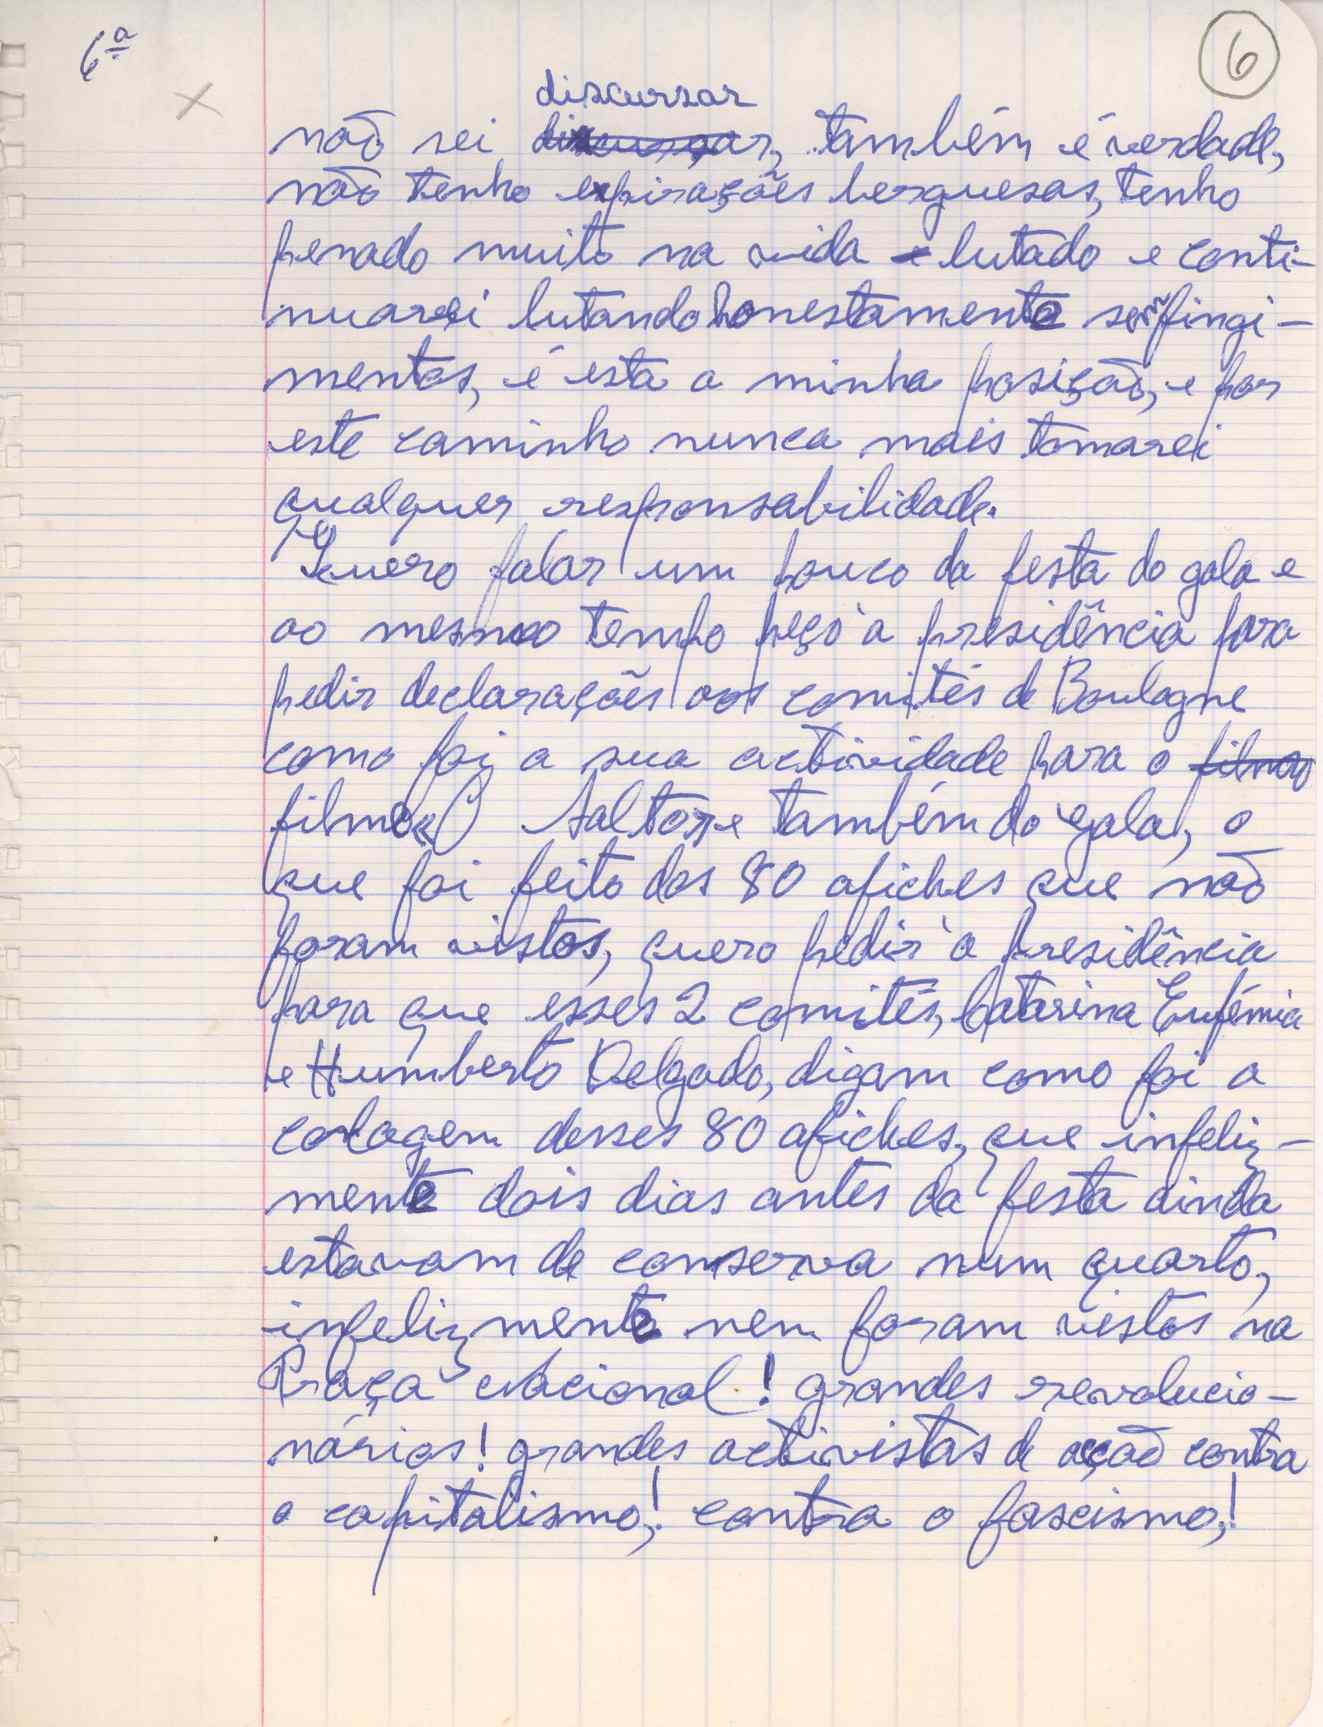 6ª
6
discursar
não sei discursar, também é verdade,
não tenho expirações berguesas, tenho
penado muito na vida e lutado e conti-
nuarei lutando honestamente sem fingi-
mentos, é esta a minha posição, e por
este caminho nunca mais tomarei
qualquer responsabilidade.
Quero falar um pouco da festa do gala e
ao mesmo tempo peço à presidência para
pedir declarações aos comités de Boulogne
como foi a sua actividade para o filme
filme «O Salto» e também do gala, o
que foi feito dos 80 afiches que não
foram vistos, quero pedir à presidência
para que esses 2 comités, Catarina Eufémia
e Humberto Delgado, digam como foi a
colagem desses 80 afiches, que infeliz-
mente dois dias antes da festa ainda
estavam de conserva num quarto,
infelizmente nem foram vistos na
Praça Nacional! grandes revolucio-
nários! grandes activistas de acção contra
o capitalismo,! contra o fascismo,!